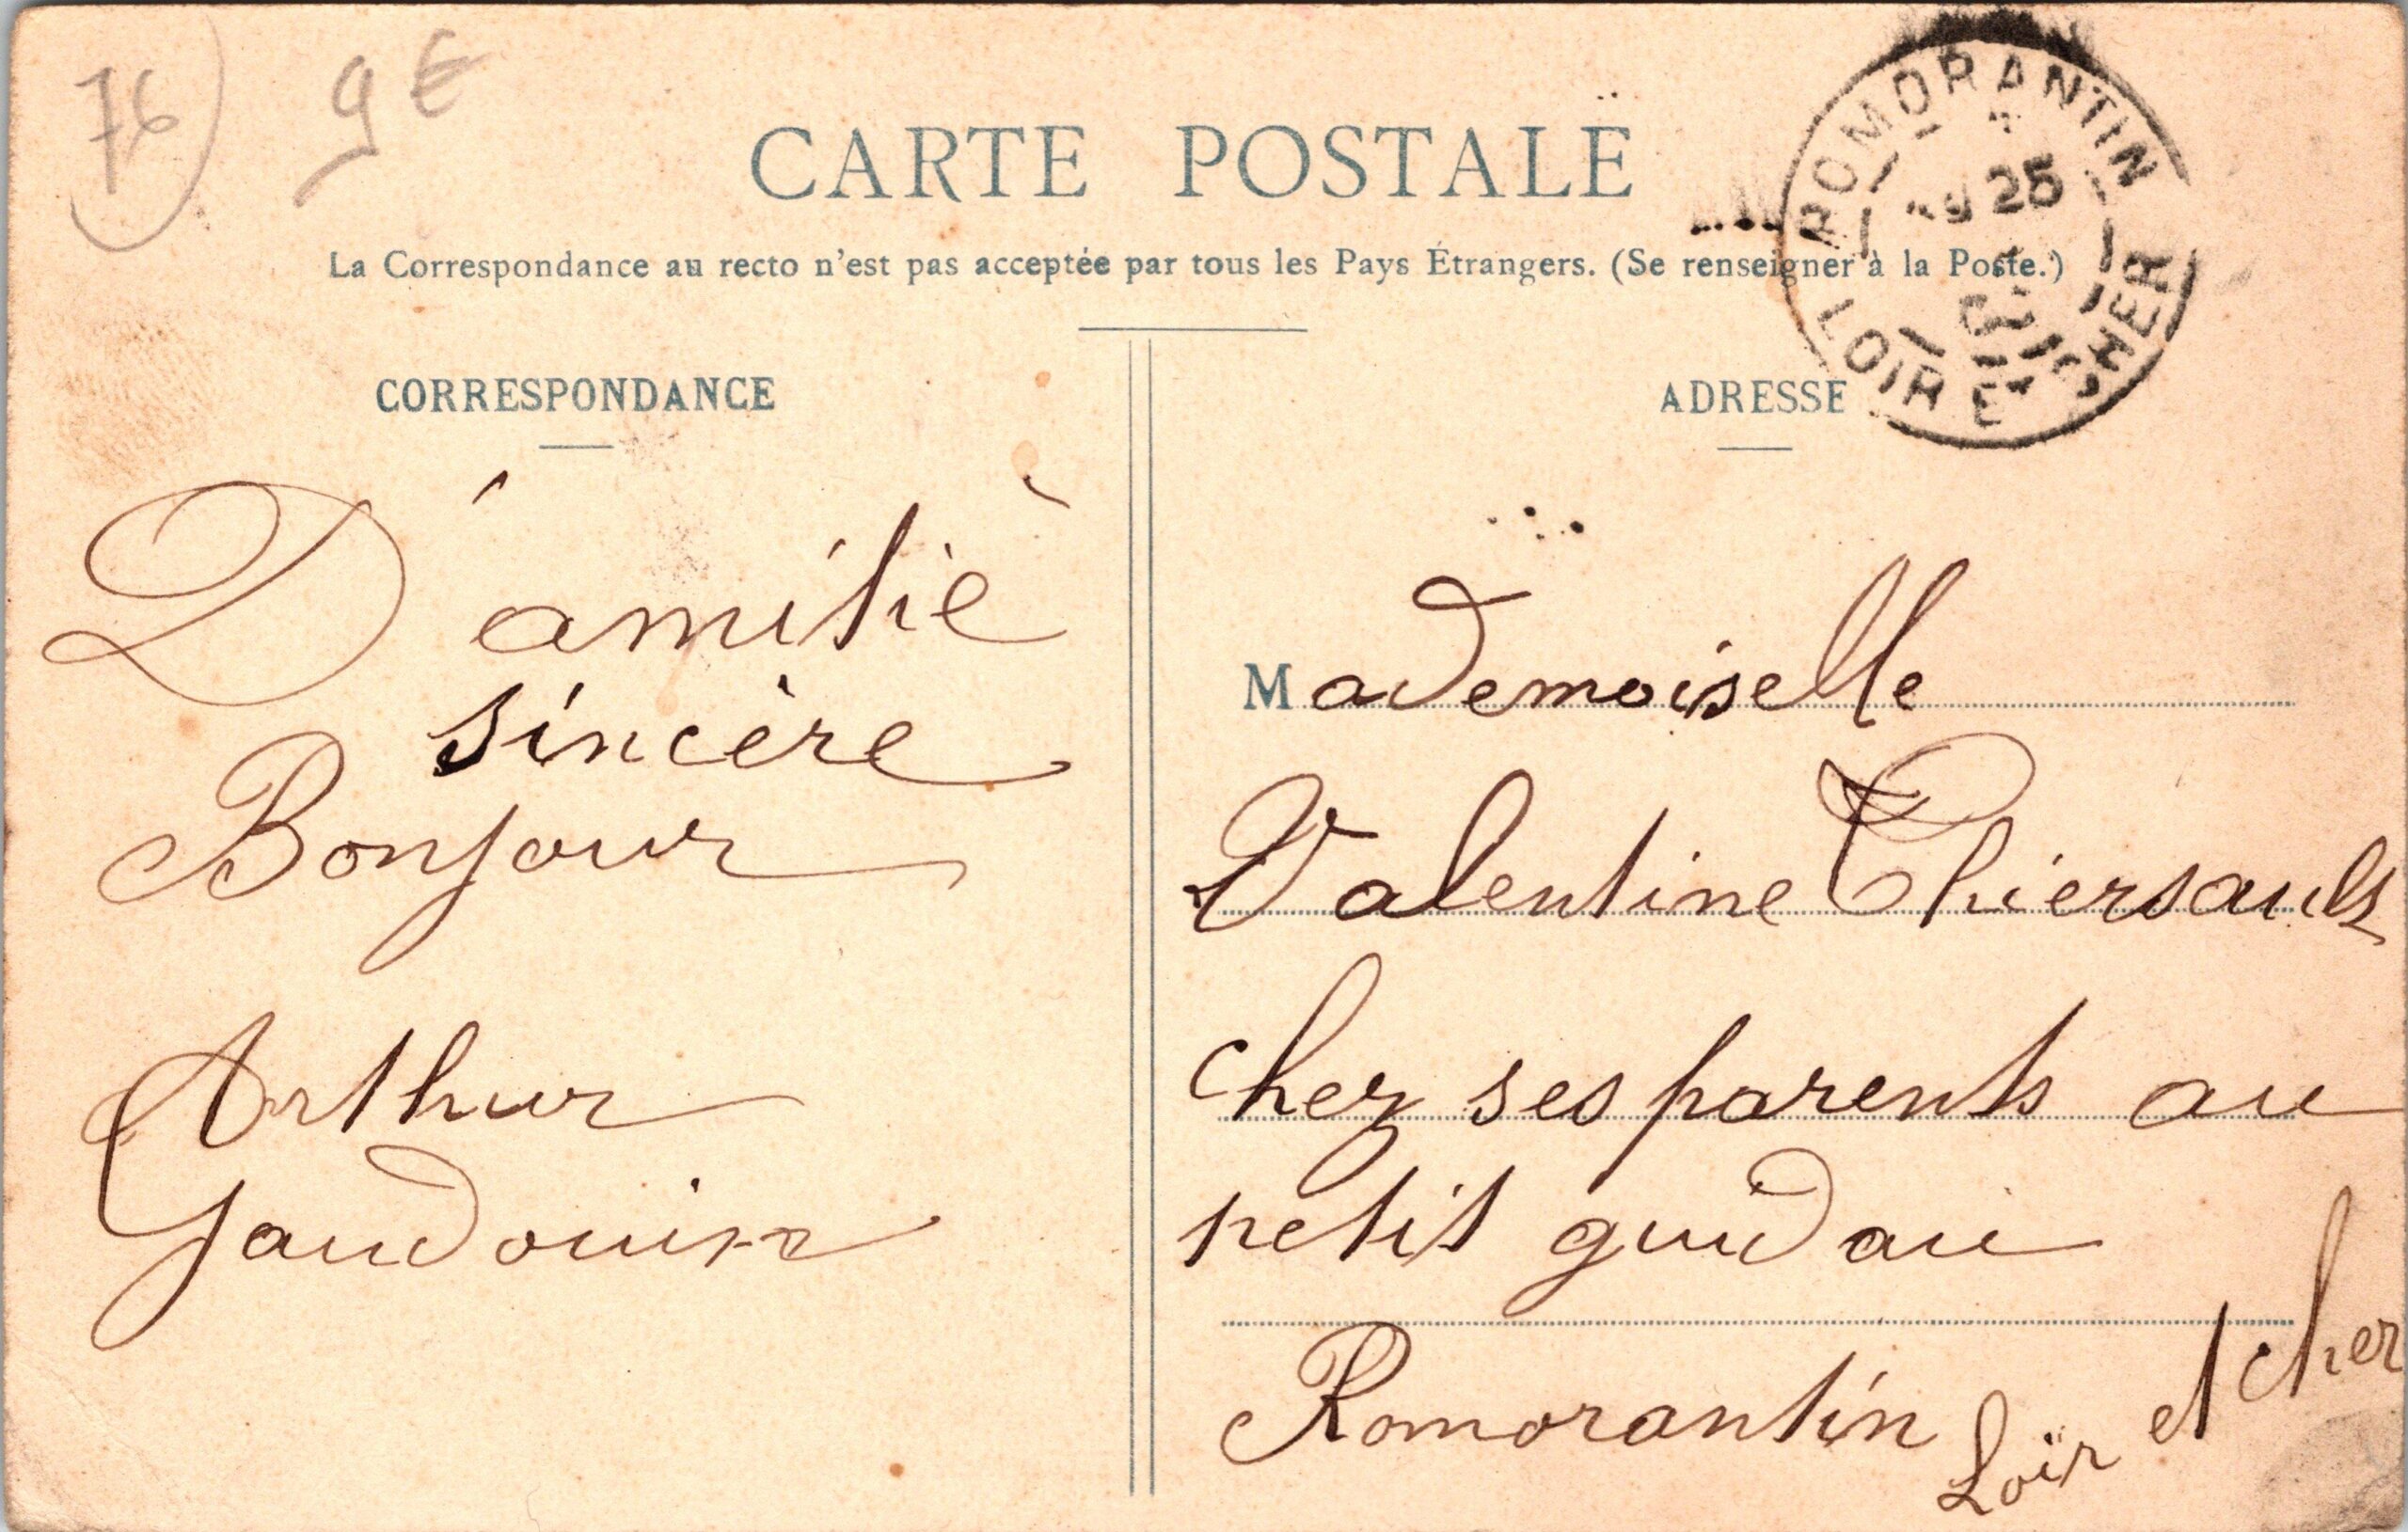 76
9€
CARTE POSTALE
La Correspondance au recto n'est pas acceptée par tous les Pays Étrangers. (Se renseigner à la Poste.)
ROMORANTIN
25
LOIR E CHER
CORRESPONDANCE
ADRESSE
D'amitiè
sincère
Bonjour
Arthur
Gaudouin
Mademoiselle
Valentine Thiersault
chez ses parents au
petit
Romorantin
Loir et cher